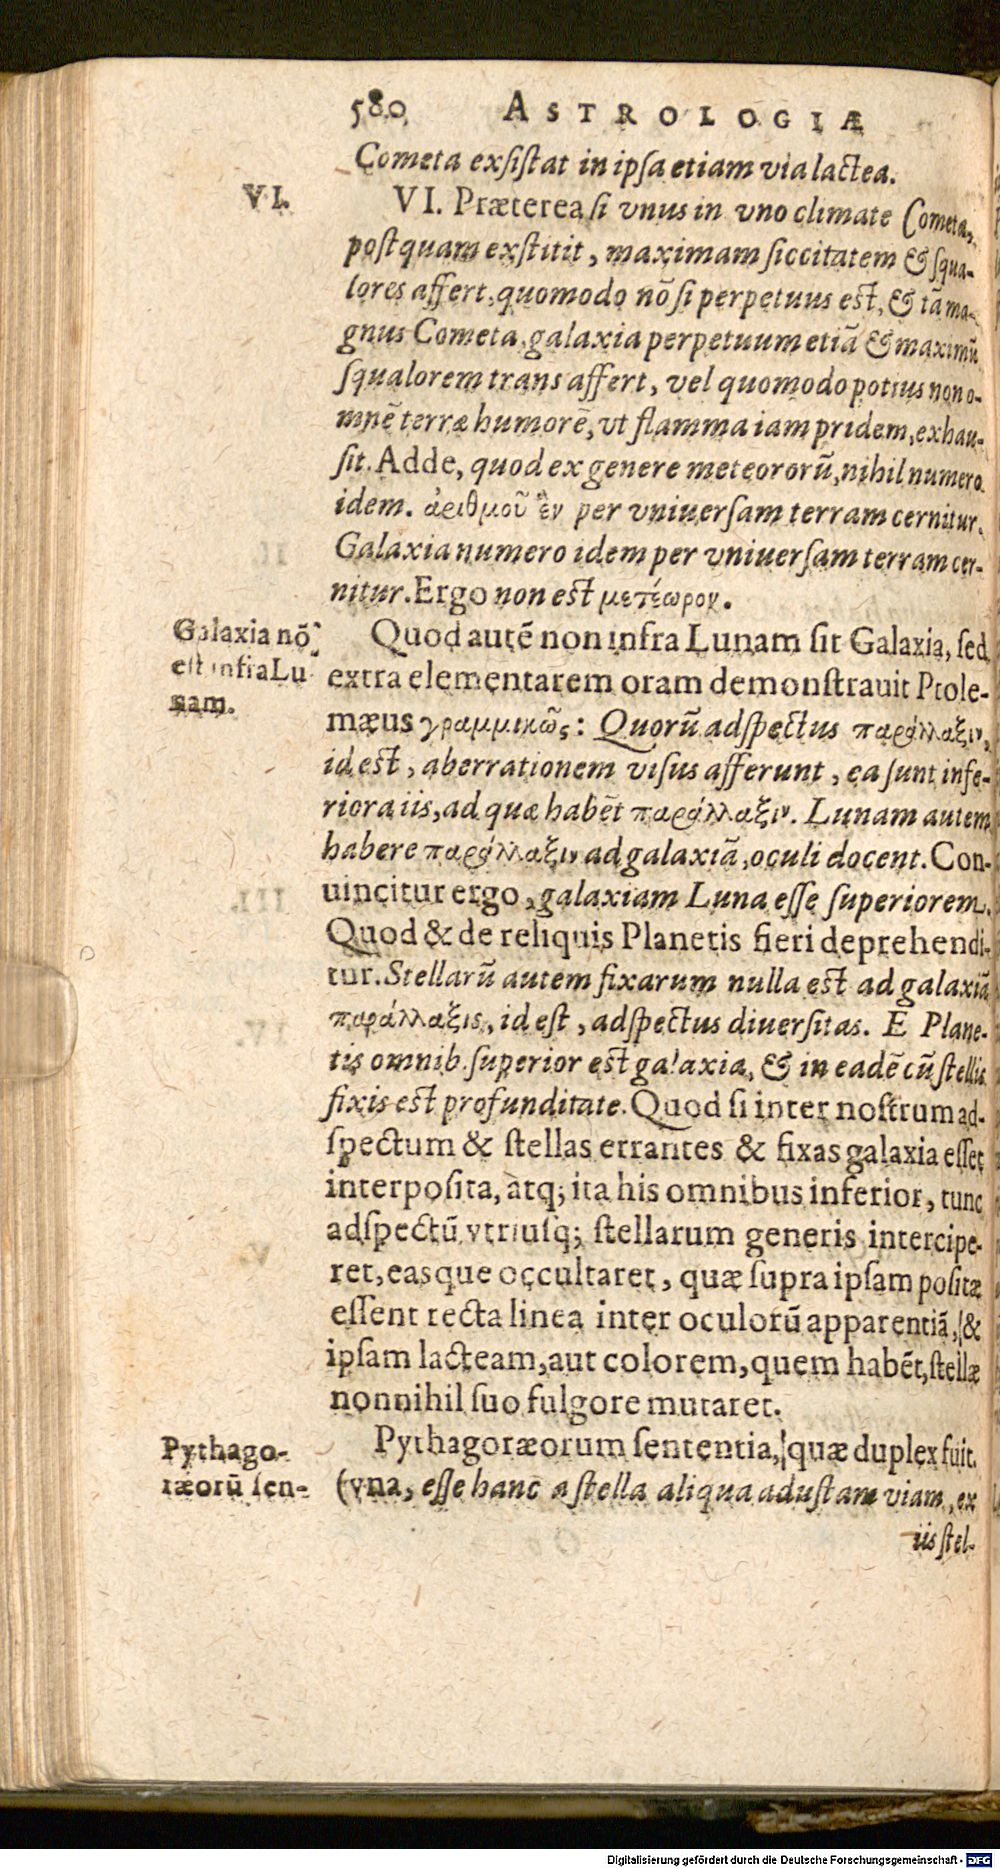 580 ASTROLOGIÆ
Cometa exſiſtat in ipſa etiam via lactea.
VI.
VI. Præterea ſi vnus in vno climate Cometa,
poſtquam exſtitit, maximam ſiccitatem & ſqua-
lores affert, quomodo nō ſi perpetuus eſt, & tā ma-
gnus Cometa, galaxia perpetuum etiā & maximū
ſqualorem trans affert, vel quomodo potius non o-
mnē terræ humorē, vt flamma iam pridem, exhau-
ſit. Adde, quod ex genere meteororū, nihil numero
idem. ἀριθμοῦ ἓν per vniuerſam terram cernitur.
Galaxia numero idem per vniuerſam terram cer-
nitur. Ergo non eſt μετέωρον.
Galaxia nō
eſt infra Lu
nam.
Quod autē non infra Lunam ſit Galaxia, ſed
extra elementarem oram demonſtrauit Ptole-
mæus γραμμικῶς: Quorū adſpectus παράλλαξιν,
id eſt, aberrationem viſus afferunt, ea ſunt infe-
riora iis, ad quæ habēt παράλλαξιν. Lunam autem
habere παράλλαξιν ad galaxiā, oculi docent. Con-
uincitur ergo, galaxiam Luna eſſe ſuperiorem.
Quod & de reliquis Planetis fieri deprehendi-
tur. Stellarū autem fixarum nulla eſt ad galaxiā
παράλλαξις, id eſt, adſpectus diuerſitas. E Plane-
tis omnib. ſuperior eſt galaxia, & in eadē cū ſtellis
fixis eſt profunditate. Quod ſi inter noſtrum ad-
ſpectum & ſtellas errantes & fixas galaxia eſſet
interpoſita, atq; ita his omnibus inferior, tunc
adſpectū vtriuſq; ſtellarum generis intercipe-
ret, eas que occultaret, quæ ſupra ipſam poſitæ
eſſent recta linea inter oculorū apparentiā, &
ipſam lacteam, aut colorem, quem habēt, ſtellæ
nonnihil ſuo fulgore mutaret.
Pythago-
ræorū ſen-
Pythagoræorum ſententia, quæ duplex fuit.
(vna, eſſe hanc a ſtella aliqua aduſtam viam, ex
iis ſtel-
Digitalisierung gefördert durch die Deutsche Forschungsgemeinschaft - DFG